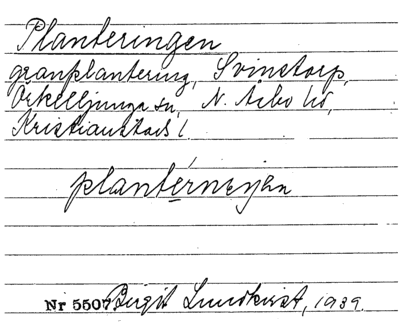 Planteringen
granplantering, Svinstorp,
Örkelljunga sn, N. Åsbo hd,
Kristianstads l.
Nr 5507 Birgit Lundkvist, 1939.